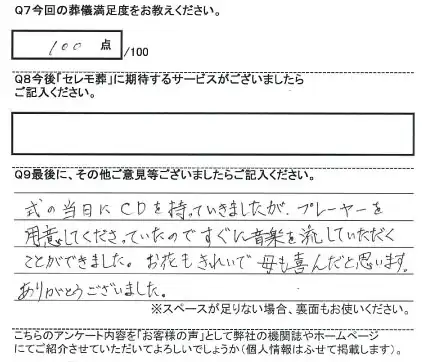 Q7今回の葬儀満足度をお教えください。
100 点 /100
Q8今後「セレモ葬」に期待するサービスがございましたら
ご記入ください。
Q9最後に、その他ご意見等ございましたらご記入ください。
式の当日にCDを持っていきましたが、プレーヤーを
用意してくださっていたのですぐに音楽を流していただく
ことができました。お花もきれいで母も喜んだと思います。
ありがとうございました。
※スペースが足りない場合、裏面もお使いください。
こちらのアンケート内容を「お客様の声」として弊社の機関誌やホームページ
にてご紹介させていただいてよろしいでしょうか(個人情報はふせて掲載します)。